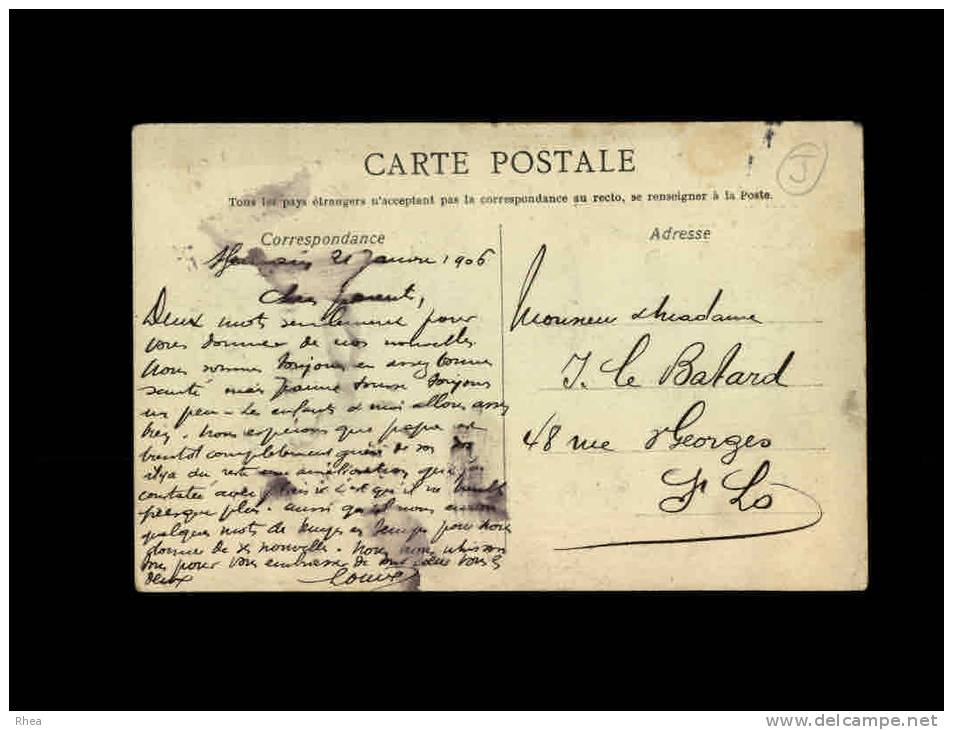 J
CARTE POSTALE
Tous les pays étrangers n'acceptant pas la correspondance au recto, se renseigner à la Poste.
Correspondance
21 Janvier 1906
Chers parents,
Deux mots seulement pour
vous donner de nos nouvelles
Nous sommes toujours en assez bonne
santé mais tousse toujours
un peu - Les enfants & moi allons assez
bien. Nous espérons que papa est
bientot complètement guéri de son dos
il y a du reste une amélioration que j'ai
constatée avec plaisir c'est qu'il ne tremble
presque plus. aussi qu'il nous envoie
quelques mots de temps en temps pour nous
donner de ses nouvelles. Nous nous
tous pour vous embrasser de tout coeur tous les
deux
Adresse
Monsieur & Madame
J. Le Batard
48 rue St Georges
St Lô
Rhea
www.delcampe.net